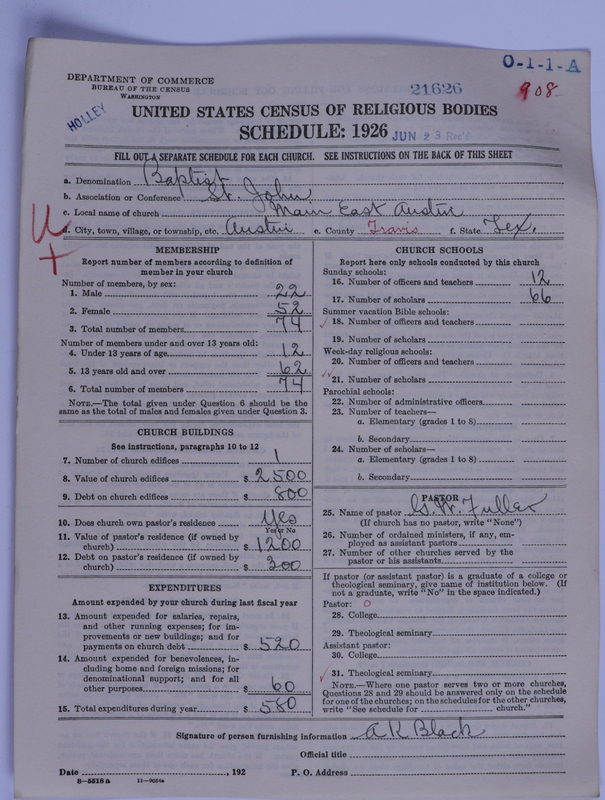 O-1-1-A
DEPARTMENT OF COMMERCE
BUREAU OF THE CENSUS
WASHINGTON
21626
908
HOLLEY
UNITED STATES CENSUS OF RELIGIOUS BODIES
SCHEDULE: 1926
JUN 23 Rec'd
FILL OUT A SEPARATE SCHEDULE FOR EACH CHURCH. SEE INSTRUCTIONS ON THE BACK OF THIS SHEET
a. Denomination Baptist
b. Association or Conference St. John
c. Local name of church Main East Austin
d. City, town, village, or township, etc. Austin e. County Travis f. State Tex.
MEMBERSHIP
Report number of members according to definition of
member in your church
Number of members, by sex:
1. Male 22
2. Female 52
3. Total number of members 74
Number of members under and over 13 years old:
4. Under 13 years of age 12
5. 13 years old and over 62
6. Total number of members 74
NOTE.—The total given under Question 6 should be the
same as the total of males and females given under Question 3.
CHURCH BUILDINGS
See instructions, paragraphs 10 to 12
7. Number of church edifices 1
8. Value of church edifices $ 2500
9. Debt on church edifices $ 800
10. Does church own pastor's residence Yes
Yes or No
11. Value of pastor's residence (if owned by
church) $ 1200
12. Debt on pastor's residence (if owned by
church) $ 200
EXPENDITURES
Amount expended by your church during last fiscal year
13. Amount expended for salaries, repairs,
and other running expenses; for im-
provements or new buildings; and for
payments on church debt $ 520
14. Amount expended for benevolences, in-
cluding home and foreign missions; for
denominational support; and for all
other purposes $ 60
15. Total expenditures during year $ 580
CHURCH SCHOOLS
Report here only schools conducted by this church
Sunday schools:
16. Number of officers and teachers 12
17. Number of scholars 66
Summer vacation Bible schools:
18. Number of officers and teachers
19. Number of scholars
Week-day religious schools:
20. Number of officers and teachers
21. Number of scholars
Parochial schools:
22. Number of administrative officers
23. Number of teachers—
a. Elementary (grades 1 to 8)
b. Secondary
24. Number of scholars—
a. Elementary (grades 1 to 8)
b. Secondary
PASTOR
25. Name of pastor G. W. Fuller
(If church has no pastor, write "None")
26. Number of ordained ministers, if any, em-
ployed as assistant pastors
27. Number of other churches served by the
pastor or his assistants
If pastor (or assistant pastor) is a graduate of a college or
theological seminary, give name of institution below. (If
not a graduate, write "No" in the space indicated.)
Pastor: 0
28. College
29. Theological seminary
Assistant pastor:
30. College
31. Theological seminary
NOTE.—Where one pastor serves two or more churches,
Questions 28 and 29 should be answered only on the schedule
for one of the churches; on the schedules for the other churches,
write "See schedule for church."
Signature of person furnishing information A K Black
Official title
Date , 192 P. O. Address
8—5518a 11—9054a